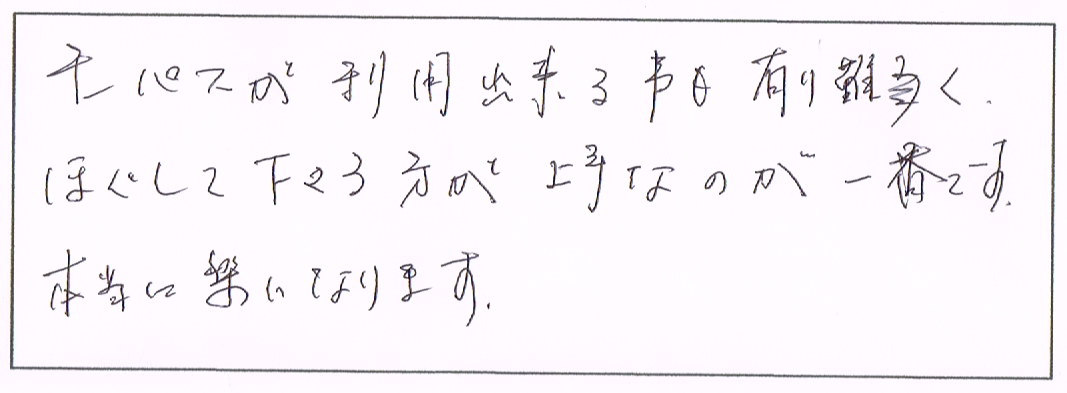 パスが利用出来る事も有り難く、
ほぐして下さる方が上手なのが一番です。
本当に楽になります。